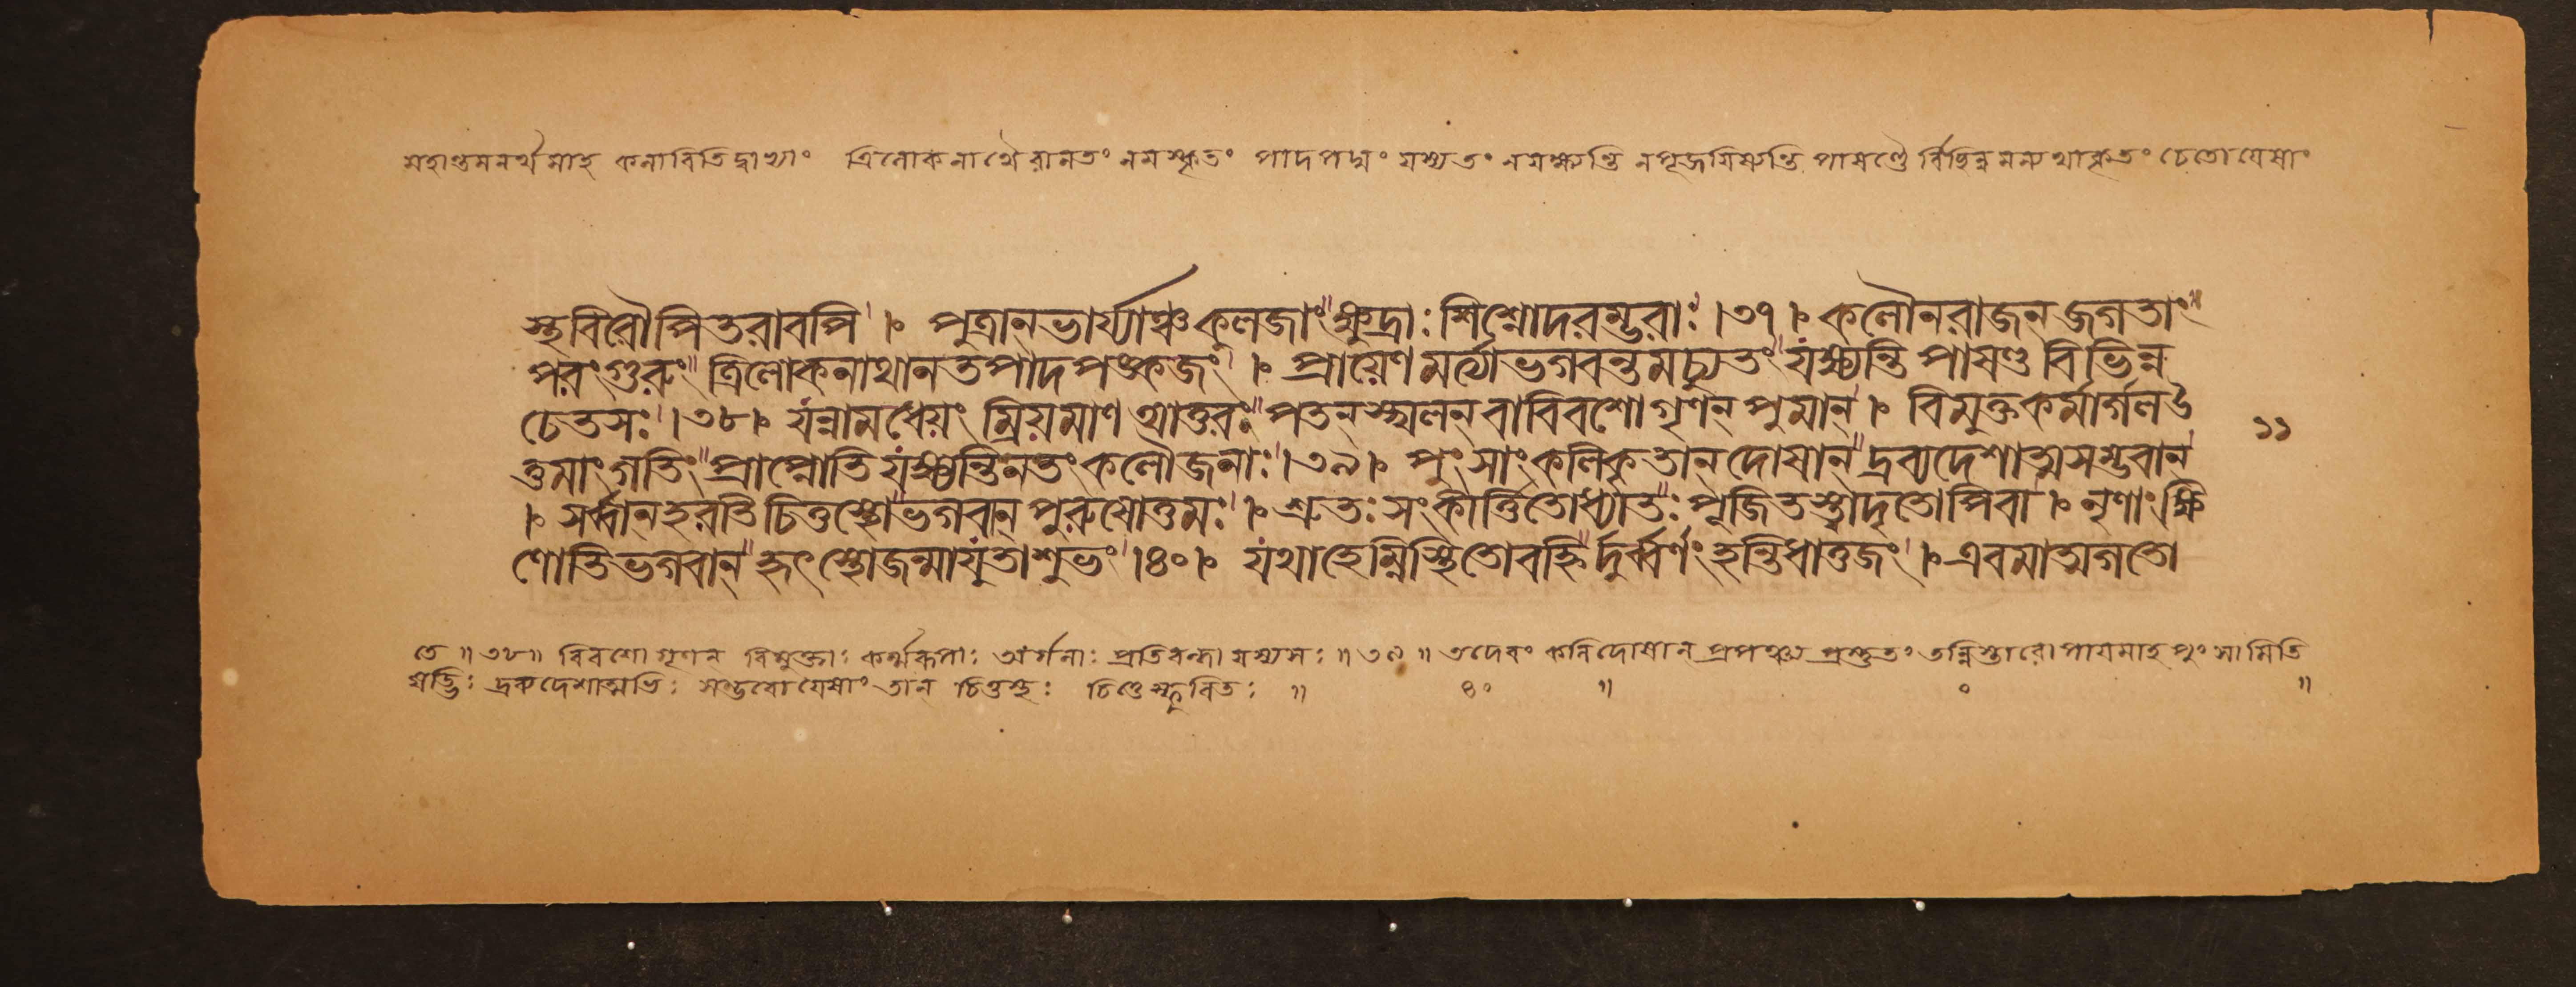 মহান্তমনর্থমাহ কলাবিতিদ্বাভ্যাং ত্রিলোকনাথৈরানতং নমস্কৃতং পাদপদ্মং যস্যতং নযক্ষ্যন্তি নপূজয়িষ্যন্তি পাষণ্ডৈর্বিভিন্নমন্যথাকৃতং চেতোযেষাং
স্থবিরৌপিতরাবপি । পুত্রান্ভার্য্যাঞ্চকুলজাং ক্ষুদ্রাঃ শিশ্নোদরম্ভরাঃ ।৩৭। কলৌনরাজন্জগতাং
পরংগুরুং ত্রিলোকনাথানতপাদপঙ্কজং । প্রায়েণমর্ত্যাভগবন্তমচ্যুতং যক্ষ্যন্তিপাষণ্ডবিভিন্ন
চেতসঃ ।৩৮। যন্নামধেয়ং ম্রিয়মাণআতুরঃ পতন্স্খলন্বাবিবশোগৃণন্পুমান্ । বিমুক্তকর্মার্গলউ
ত্তমাংগতিং প্রাপ্নোতিযক্ষ্যন্তিনতংকলৌজনাঃ ।৩৯। পুংসাংকলিকৃতান্দোষান্ দ্রব্যদেশাত্মসম্ভবান্
। সর্ব্বান্হরতিচিত্তস্থোভগবান্পুরুষোত্তমঃ । শ্রুতঃসংকীর্ত্তিতোধ্যাতঃ পূজিতস্ত্বাদৃতোপিবা । নৃণাংক্ষি
ণোতিভগবান্ হৃৎস্থোজন্মাযুতাশুভং ।৪০। যথাহেম্নিস্থিতোবহ্নির্দুর্ব্বর্ণংহন্তিধাতুজং । এবমাত্মগতো
১১
তে ॥৩৮॥ বিবশো গৃণন্ বিমুক্তাঃ কর্ম্মরূপাঃ অর্গলাঃ প্রতিবন্ধা যস্যসঃ ॥৩৯॥ তদেবং কলিদোষান্ প্রপঞ্চ্য প্রস্তুতং তন্নিস্তারোপায়মাহ পুংসামিতি
দ্রব্যদেশাত্মভিঃ সম্ভবোযেষাং তান্ চিত্তস্থঃ ॥ ৪০ ॥ ০ ॥